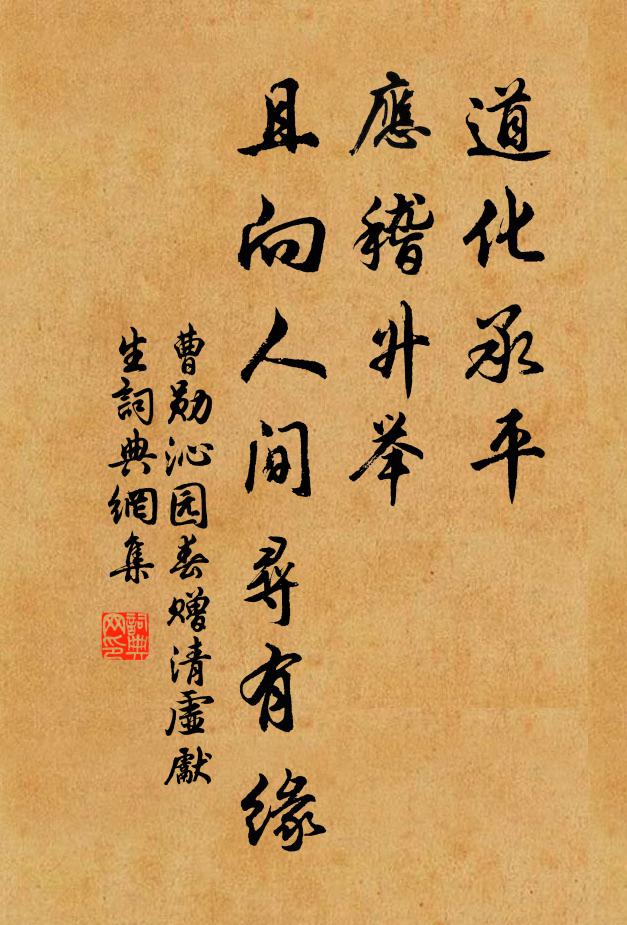 道化承平
應稽升举
且向人间尋有缘
曹勋沁园春赠清虛獻
生詞典網集
詞典
网印